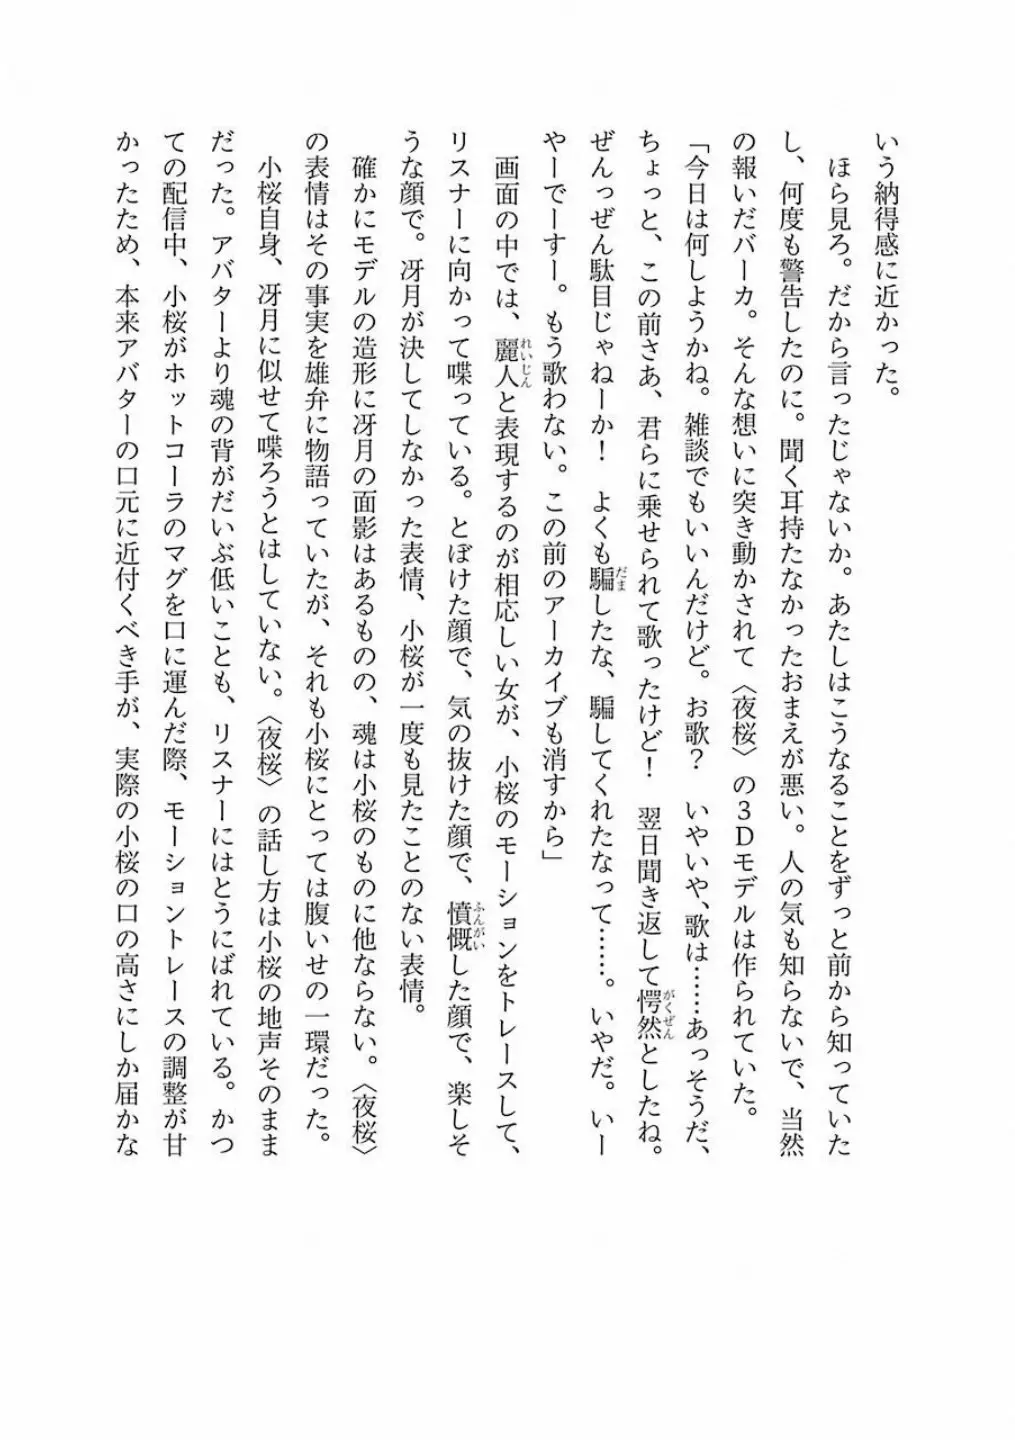 いう納得感に近かった。
ほら見ろ。だから言ったじゃないか。あたしはこうなることをずっと前から知っていた
し、何度も警告したのに。聞く耳持たなかったおまえが悪い。人の気も知らないで、当然
の報いだバーカ。そんな想いに突き動かされて〈夜桜〉の3Dモデルは作られていた。
「今日は何しようかね。雑談でもいいんだけど。お歌？　いやいや、歌は……あっそうだ、
ちょっと、この前さあ、君らに乗せられて歌ったけど！　翌日聞き返して愕然がくぜんとしたね。
ぜんっぜん駄目じゃねーか！　よくも騙だましたな、騙してくれたなって……。いやだ。いー
やーでーすー。もう歌わない。この前のアーカイブも消すから」
画面の中では、麗人れいじんと表現するのが相応しい女が、小桜のモーションをトレースして、
リスナーに向かって喋っている。とぼけた顔で、気の抜けた顔で、憤慨ふんがいした顔で、楽しそ
うな顔で。冴月が決してしなかった表情、小桜が一度も見たことのない表情。
確かにモデルの造形に冴月の面影はあるものの、魂は小桜のものに他ならない。〈夜桜〉
の表情はその事実を雄弁に物語っていたが、それも小桜にとっては腹いせの一環だった。
小桜自身、冴月に似せて喋ろうとはしていない。〈夜桜〉の話し方は小桜の地声そのまま
だった。アバターより魂の背がだいぶ低いことも、リスナーにはとうにばれている。かつ
ての配信中、小桜がホットコーラのマグを口に運んだ際、モーショントレースの調整が甘
かったため、本来アバターの口元に近付くべき手が、実際の小桜の口の高さにしか届かな